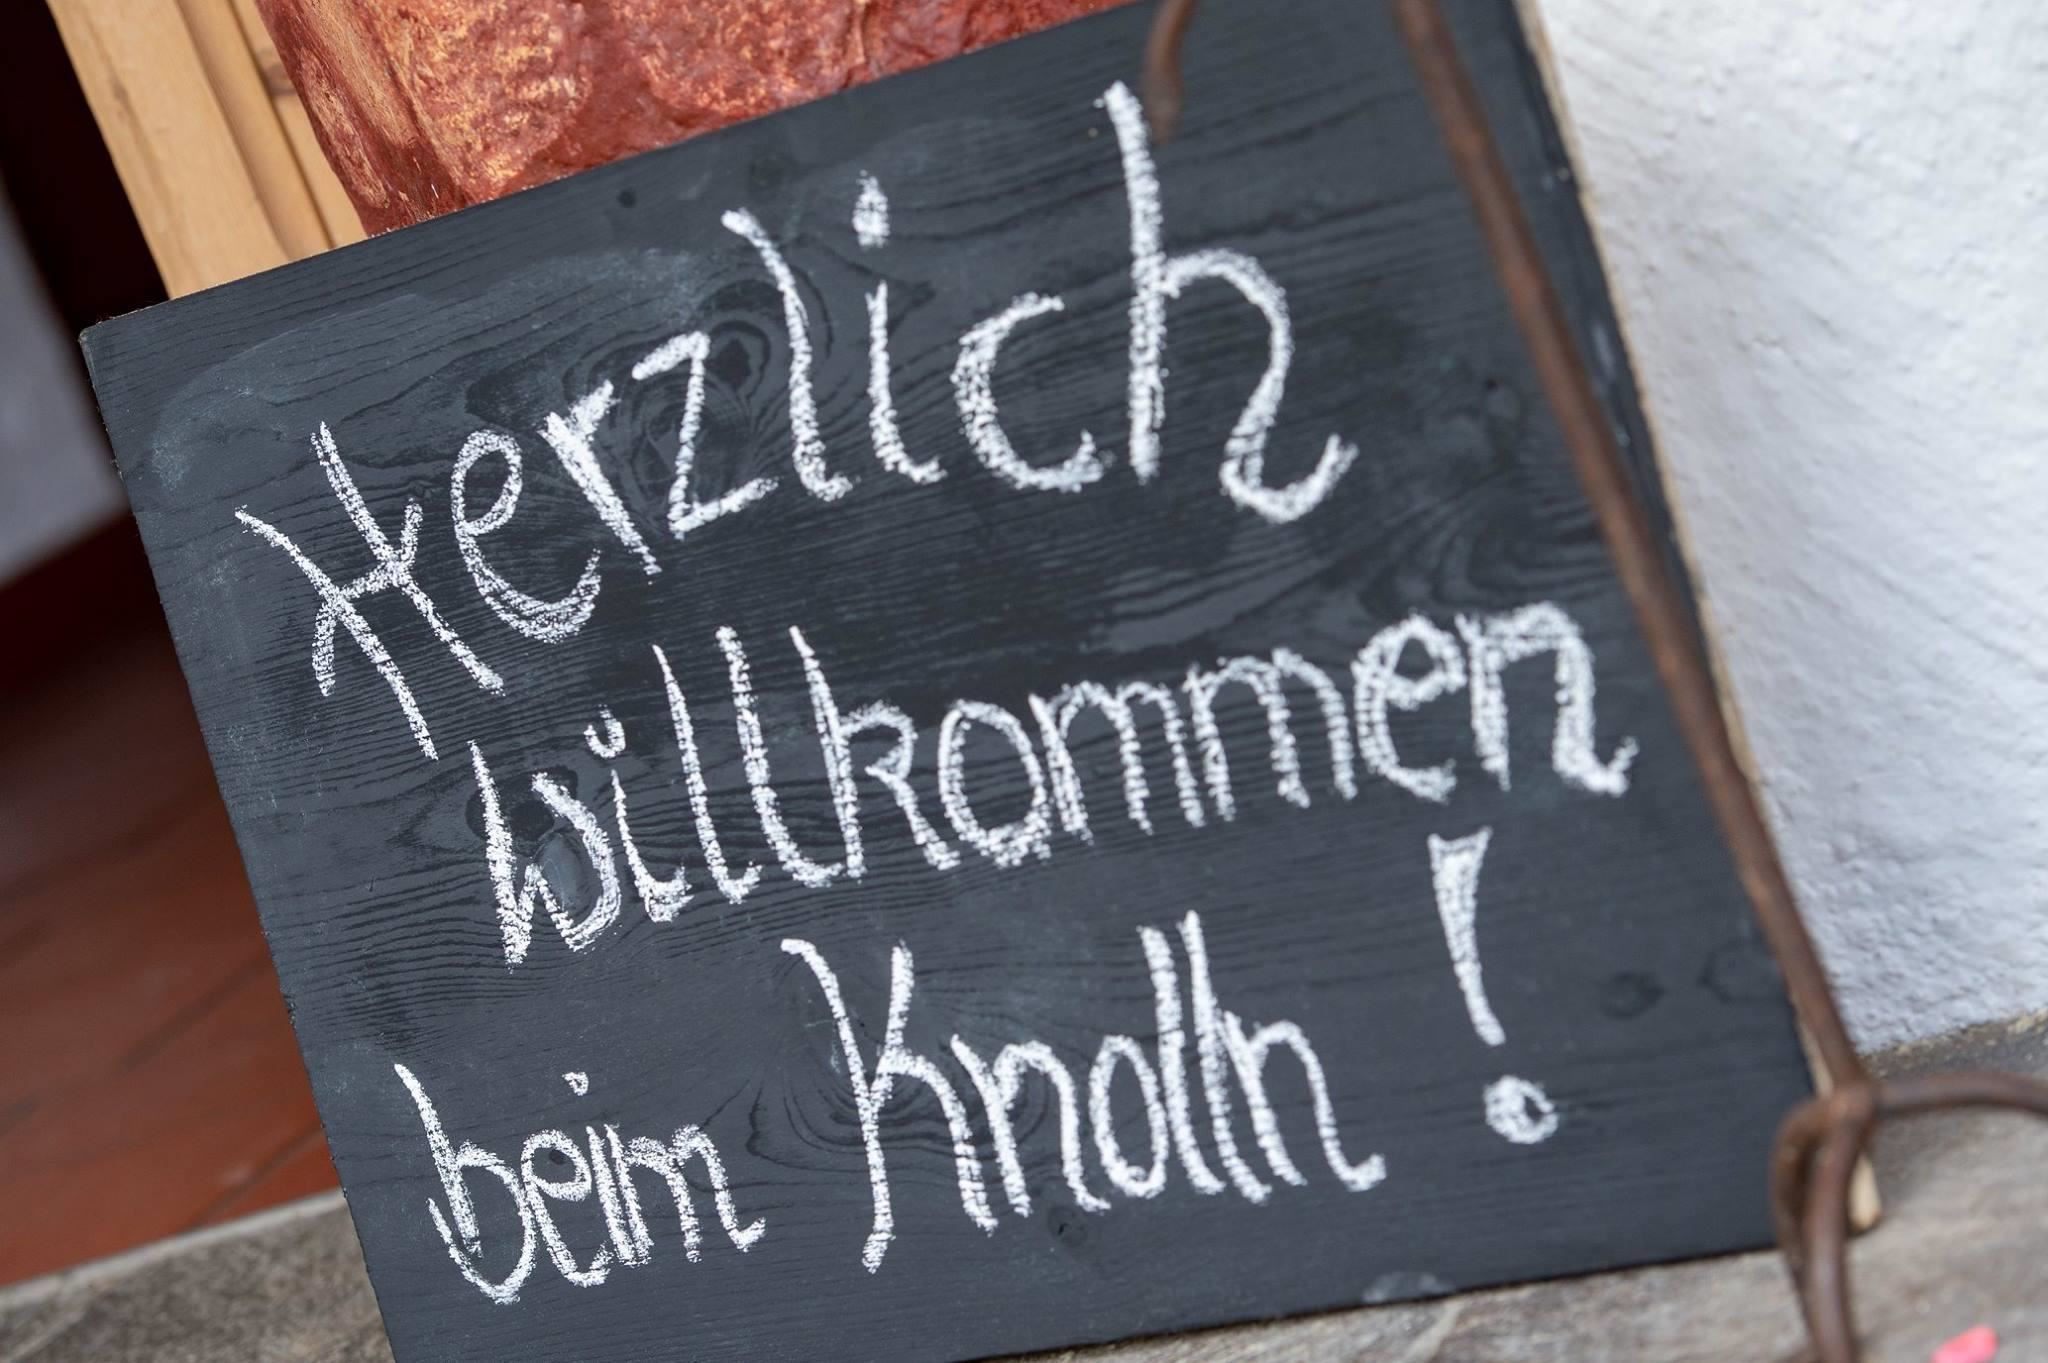 Herzlich
willkommen
beim Knolln !